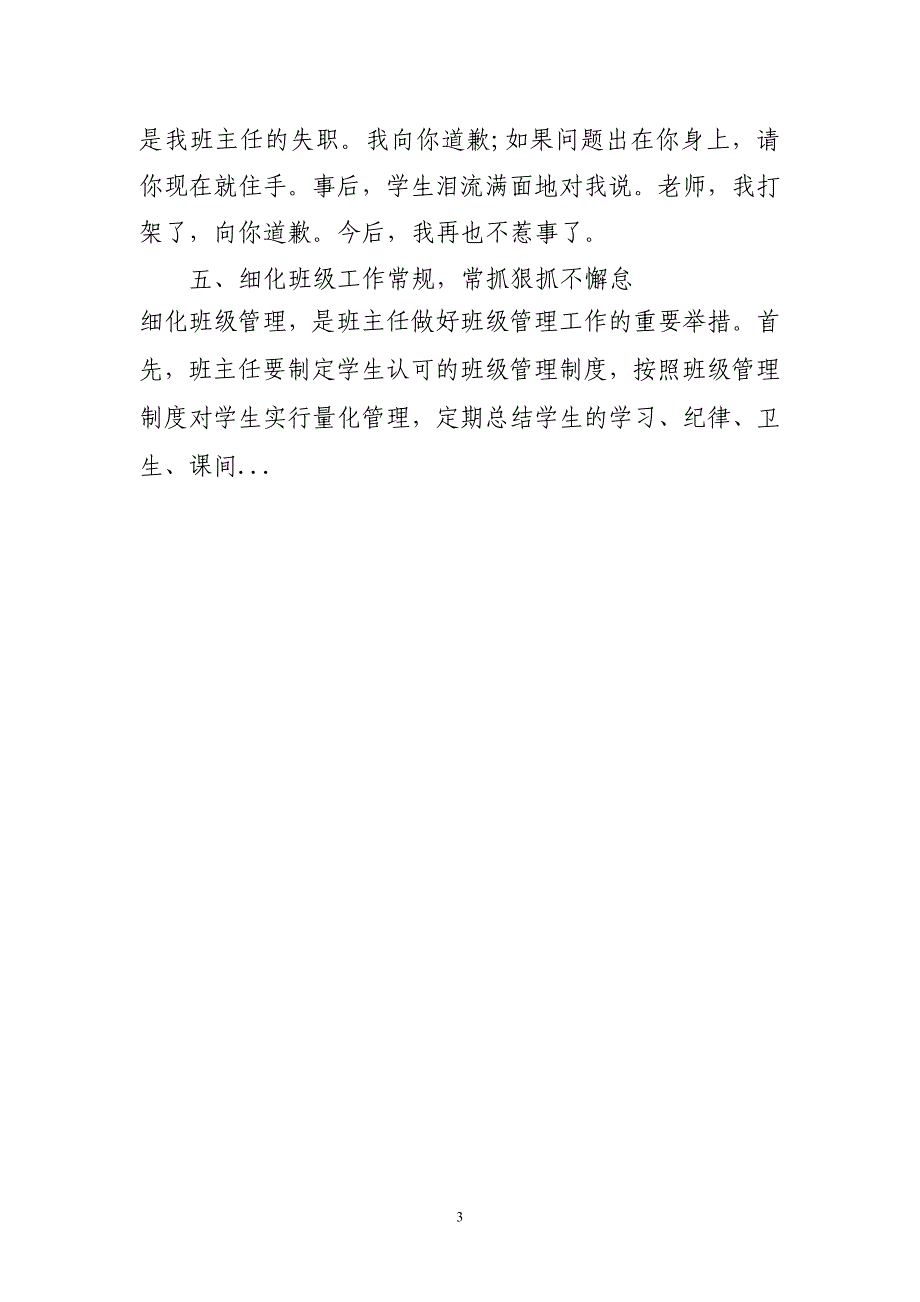 是我班主任的失职。我向你道歉;如果问题出在你身上，请
你现在就住手。事后，学生泪流满面地对我说。老师，我打
架了，向你道歉。今后，我再也不惹事了。
五、细化班级工作常规，常抓狠抓不懈怠
细化班级管理，是班主任做好班级管理工作的重要举措。首
先，班主任要制定学生认可的班级管理制度，按照班级管理
制度对学生实行量化管理，定期总结学生的学习、纪律、卫
生、课间...
3